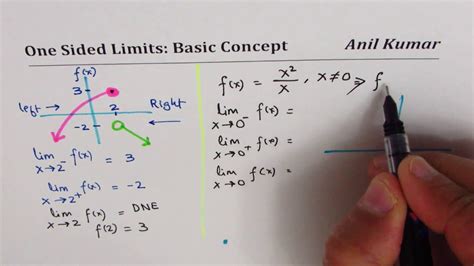 One Sided Limits: Basic Concept
Anil Kumar
f(x)
3
left →
2
← Right
-2
lim x→2⁻ f(x) = 3
lim x→2⁺ f(x) = -2
lim x→2 f(x) = DNE
f(2) = 3
f(x) = x²/x , x≠0 ⇒ f
lim x→0⁻ f(x) =
lim x→0⁺ f(x) =
lim x→0 f(x) =